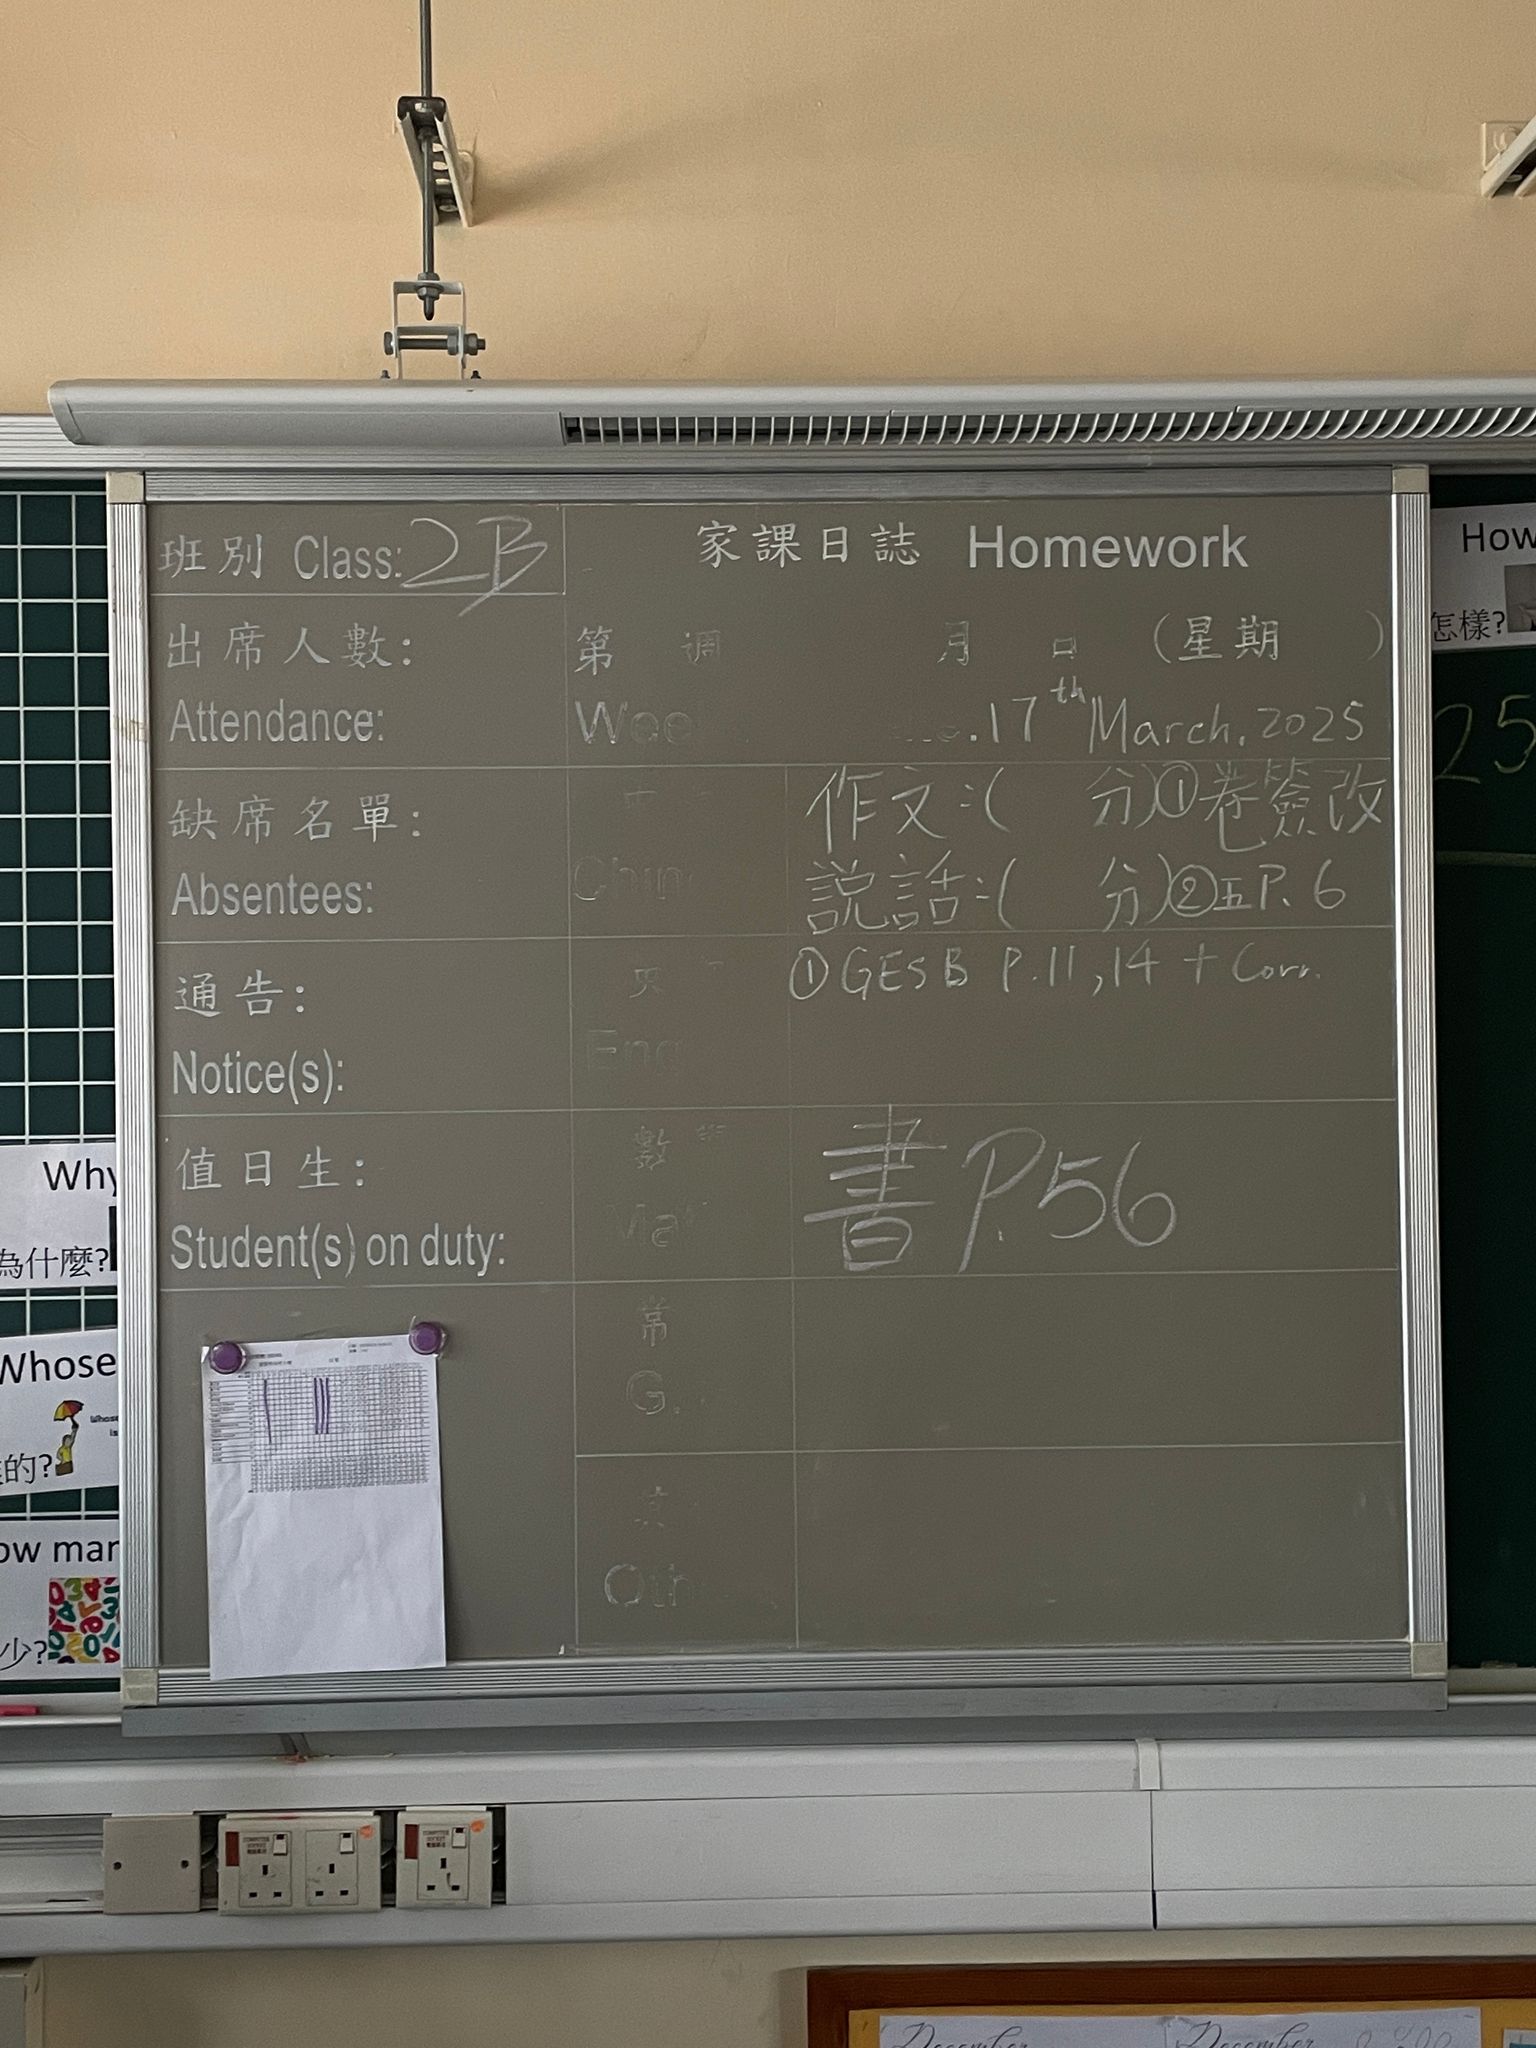 班別 Class: 2B
家課日誌 Homework
出席人數:
Attendance:
第 週 月 日 (星期 )
17th March, 2025
缺席名單:
Absentees:
作文:( 分)①卷簽改
説話:( 分)②五P. 6
通告:
Notice(s):
①GESB P.11,14 + Corr.
值日生:
Student(s) on duty:
數
書P.56
常
G.
How
怎樣?
25
Why
為什麼?
Whose
的?
少?
December
December